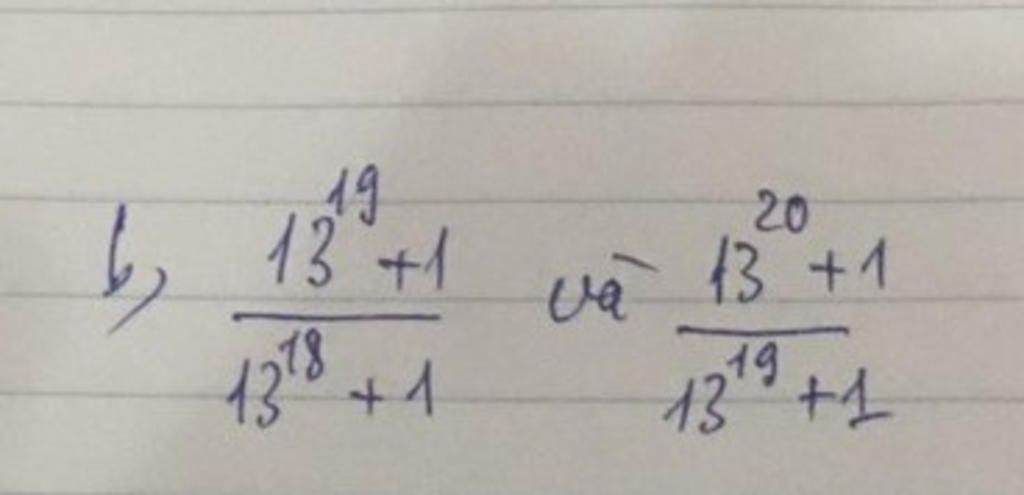 b, $\frac{13^{19}+1}{13^{18}+1}$ và $\frac{13^{20}+1}{13^{19}+1}$